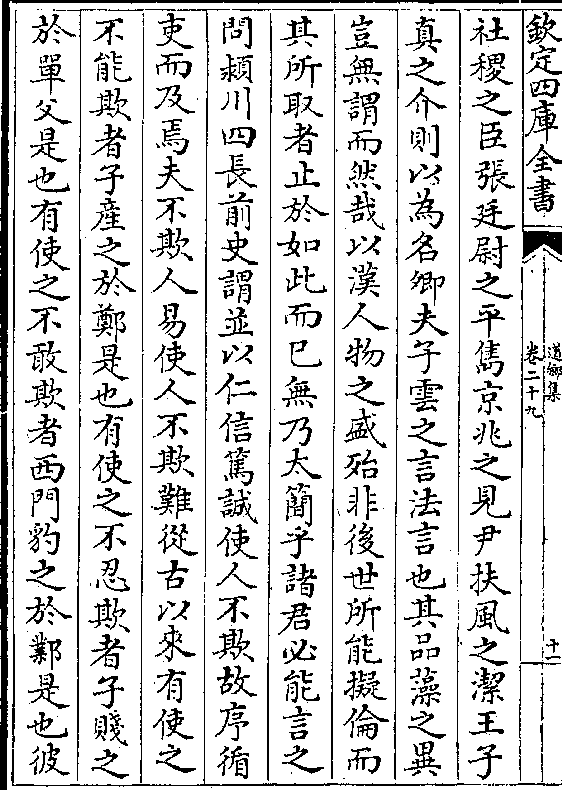 欽定四庫全書
道鄉集
卷二十九
十一
社稷之臣張廷尉之平雋京兆之見尹扶風之潔王子
真之介則以為名卿夫子雲之言法言也其品藻之異
豈無謂而然哉以漢人物之盛殆非後世所能擬倫而
其所取者止於如此而已無乃太簡乎諸君必能言之
問潁川四長前史謂並以仁信篤誠使人不欺故序循
吏而及焉夫不欺人易使人不欺難從古以來有使之
不能欺者子產之於鄭是也有使之不忍欺者子賤之
於單父是也有使之不敢欺者西門豹之於鄴是也彼